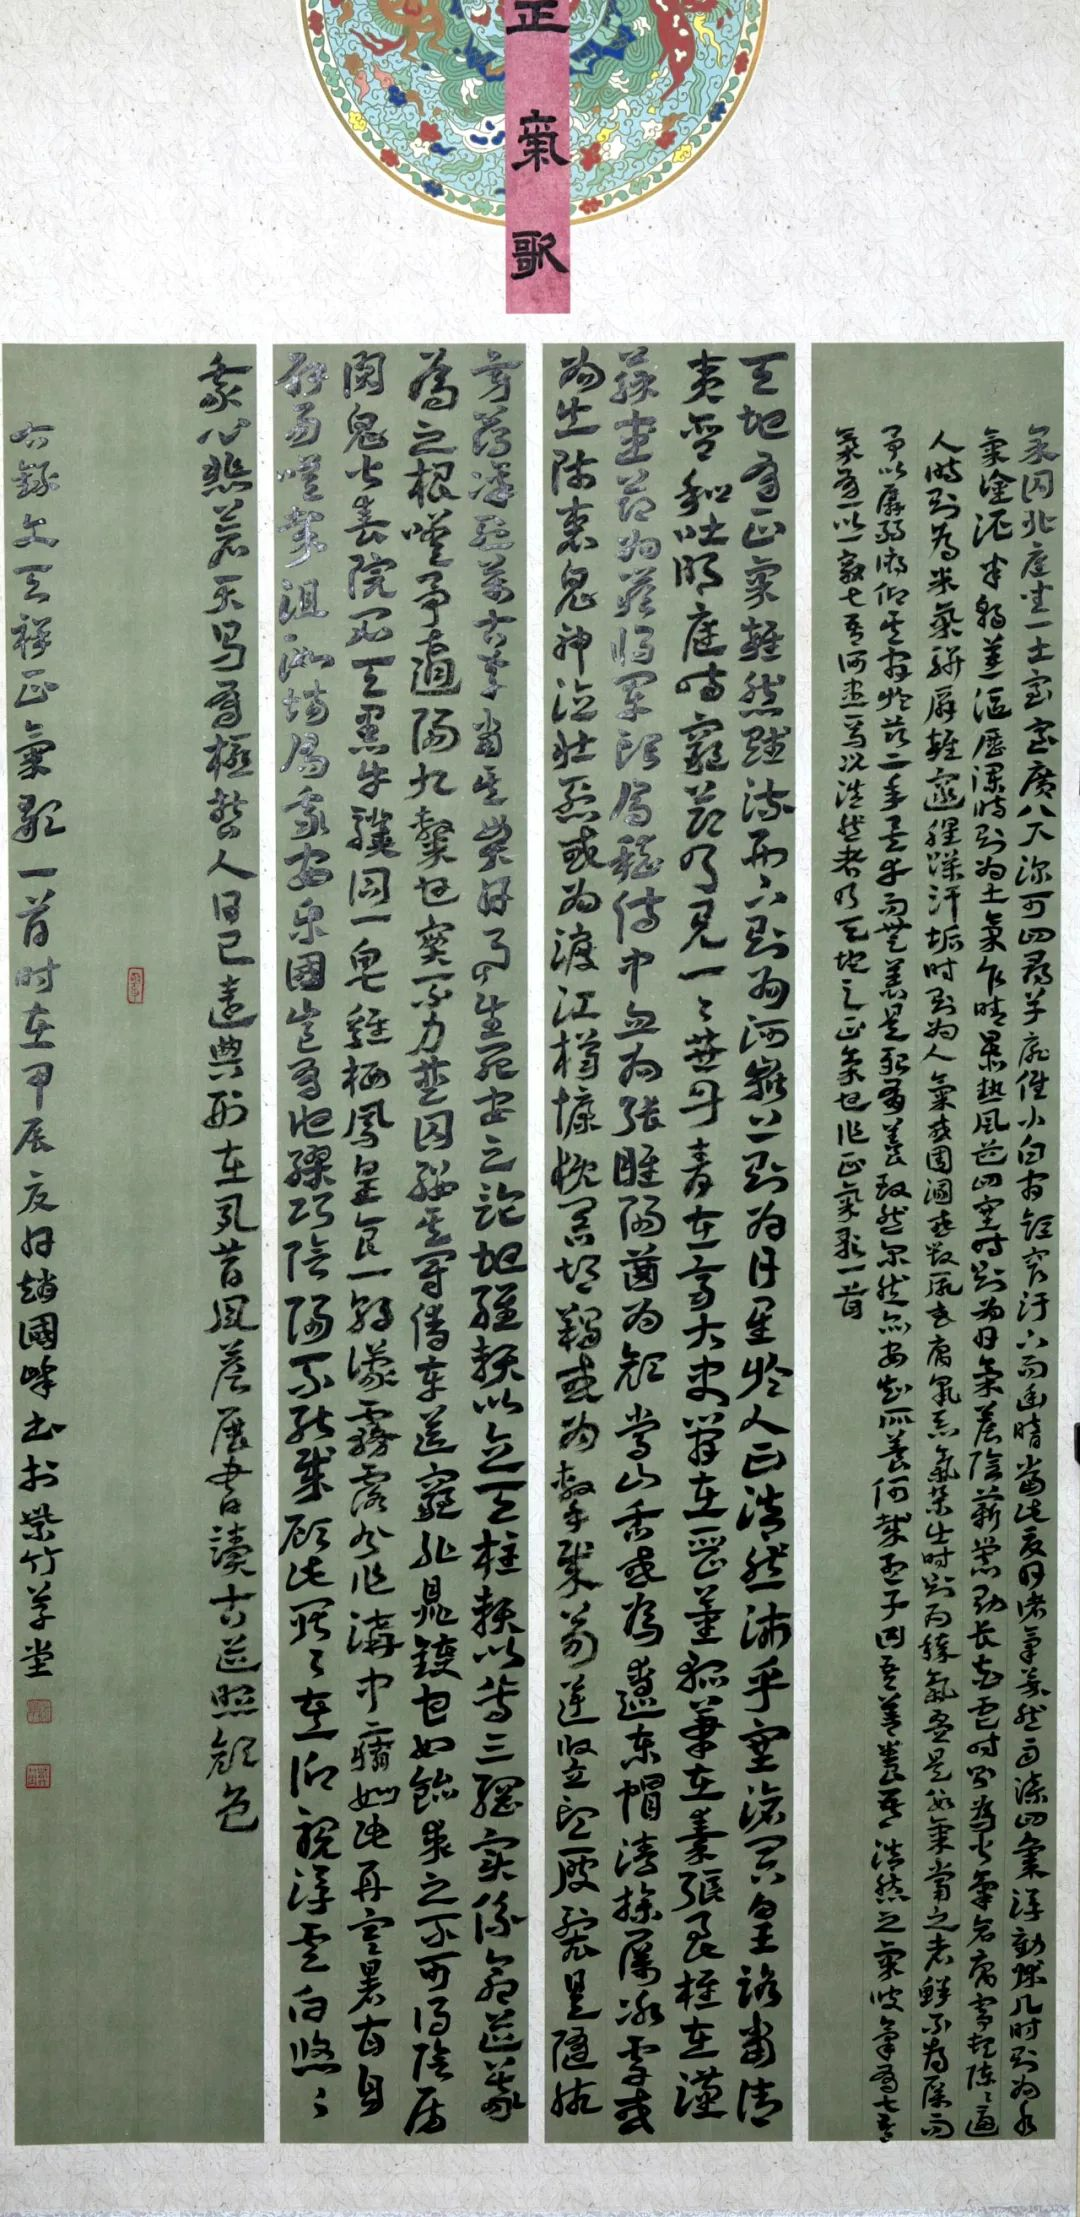 正氣歌
余囚北庭坐一土室室廣八尺深可四尋單扉低小白間短窄汙下而幽暗當此夏日諸氣萃然雨潦四集浮動床几時則為水
氣塗泥半朝蒸漚歷瀾時則為土氣乍晴暴熱風道四塞時則為日氣簷陰薪爨助長炎虐時則為火氣倉腐寄頓陳〻逼
人時則為米氣駢肩雜遝腥臊汗垢時則為人氣或圊溷或毀屍或腐鼠惡氣雜出時則為穢氣疊是數氣當之者鮮不為厲而
予以孱弱俯仰其間於茲二年矣幸而無恙是殆有養致然爾然亦安知所養何哉孟子曰吾善養吾浩然之氣彼氣有七吾
氣有一以一敵七吾何患焉況浩然者乃天地之正氣也作正氣歌一首
天地有正氣雜然賦流形下則為河嶽上則為日星於人曰浩然沛乎塞蒼冥皇路當清
夷含和吐明庭時窮節乃見一〻垂丹青在齊太史簡在晉董狐筆在秦張良椎在漢
蘇武節為嚴將軍頭為嵇侍中血為張睢陽齒為顏常山舌或為遼東帽清操厲冰雪或
為出師表鬼神泣壯烈或為渡江楫慷慨吞胡羯或為擊賊笏逆豎頭破裂是
旁薄凜烈萬古存當其貫日月生死安足論地維賴以立天柱賴以尊三綱實係命道義
為之根嗟予遘陽九隸也實不力楚囚纓其冠傳車送窮北鼎鑊甘如飴求之不可得陰房
闃鬼火春院閟天黑牛驥同一皂雞棲鳳皇食一朝濛霧露分作溝中瘠如此再寒暑百自
辟易嗟哉沮洳場為我安樂國豈有他繆巧陰陽不能賊顧此耿〻在仰視浮雲白悠〻
我心悲蒼天曷有極哲人日已遠典刑在夙昔風簷展書讀古道照顏色
右錄文天祥正氣歌一首時在甲辰夏月趙國峰書於紫竹草堂